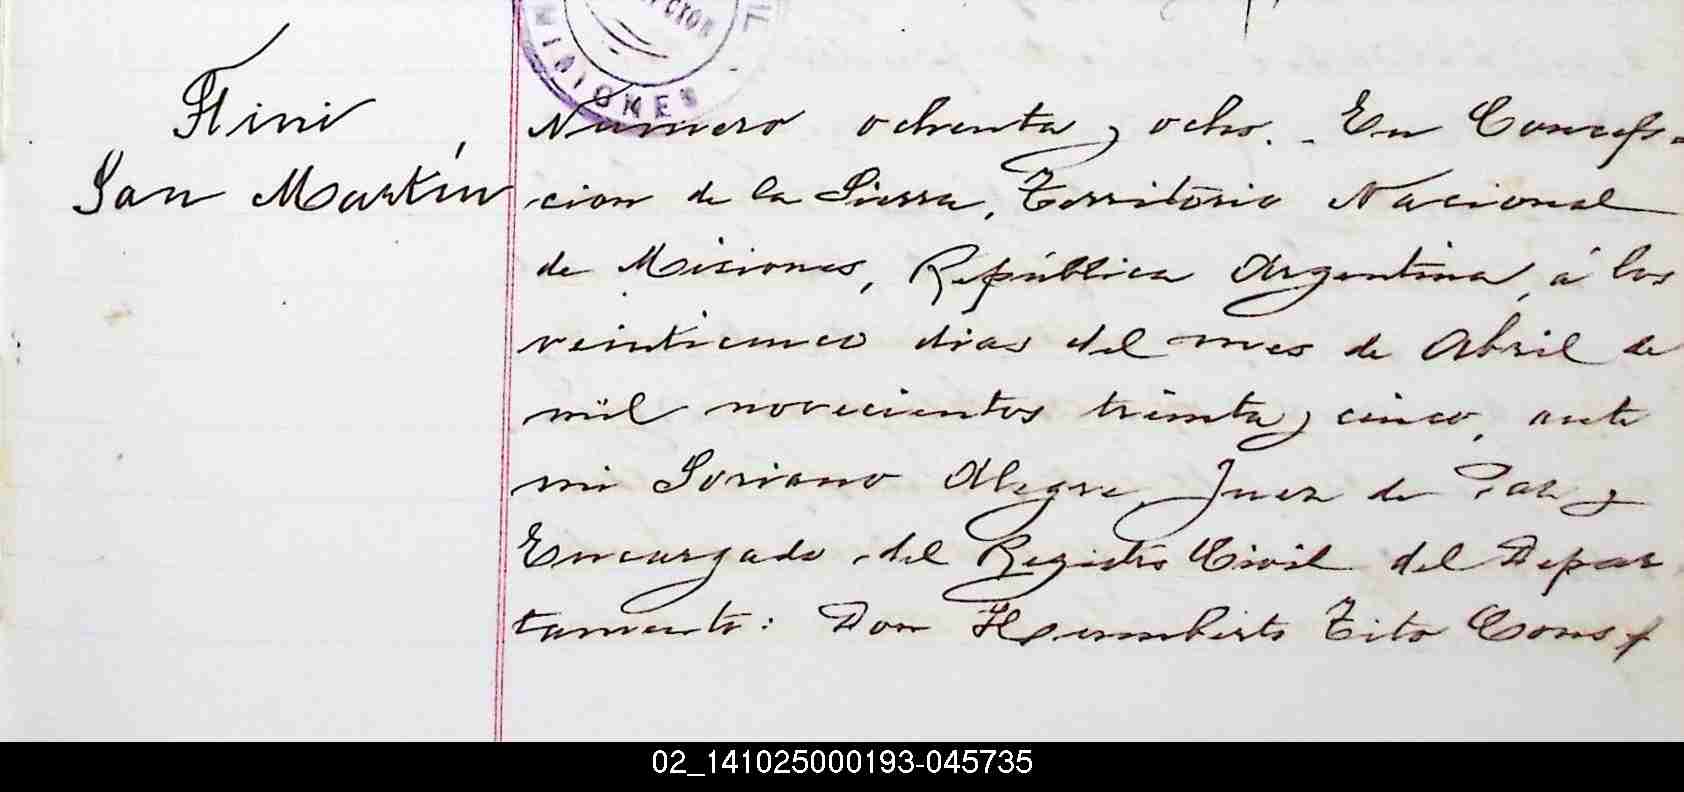 CION
MISIONES
Fini
San Martín
Numero ochenta y ocho. - En Concep-
cion de la Sierra, Territorio Nacional
de Misiones, República Argentina, á los
veinticinco dias del mes de Abril de
mil novecientos treinta y cinco, ante
mi Soriano Alegre Juez de Paz y
Encargado del Registro Civil del Depar
tamento: Don Humberto Tito
02_141025000193-045735